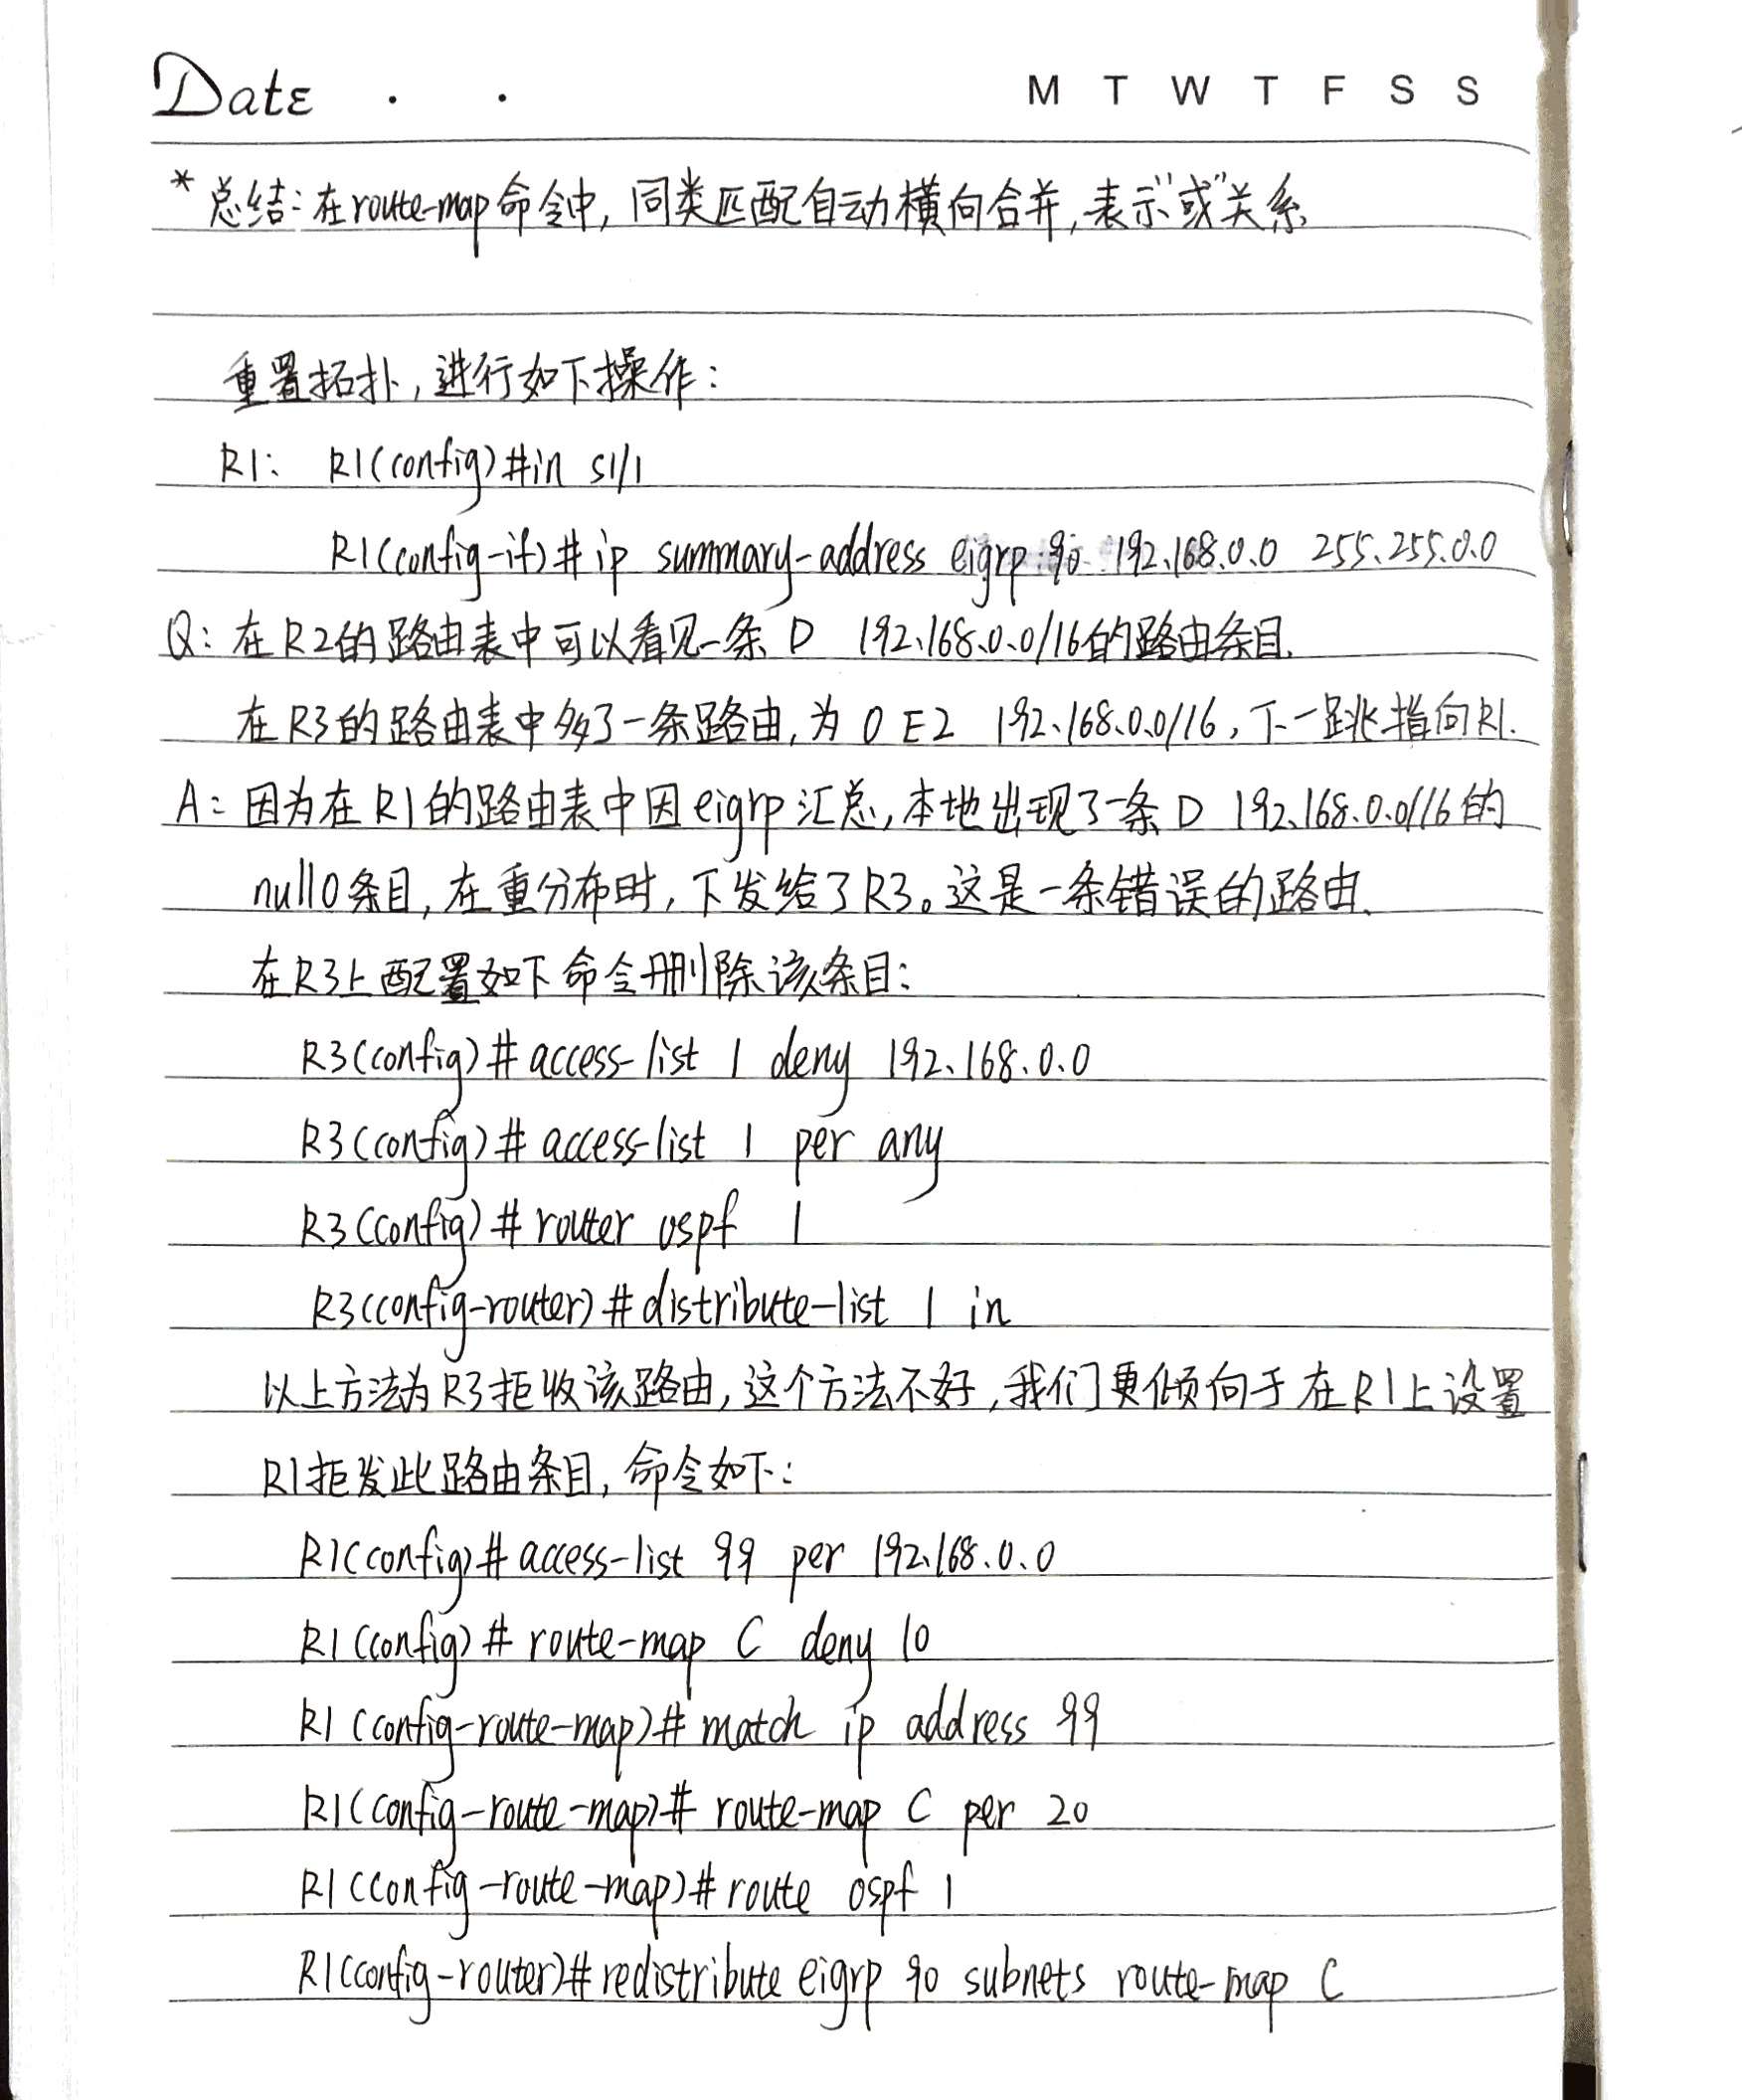 Date . .
M T W T F S S
*总结:在route-map命令中,同类匹配自动横向合并,表示"或"关系
重置拓扑,进行如下操作:
R1: R1(config)#in s1/1
R1(config-if)#ip summary-address eigrp 90 192.168.0.0 255.255.0.0
Q:在R2的路由表中可以看见一条 D 192.168.0.0/16的路由条目.
在R3的路由表中多了一条路由,为 O E2 192.168.0.0/16,下一跳指向R1.
A:因为在R1的路由表中因eigrp汇总,本地出现了一条 D 192.168.0.0/16的
null0条目,在重分布时,下发给了R3。这是一条错误的路由.
在R3上配置如下命令删除该条目:
R3(config)#access-list 1 deny 192.168.0.0
R3(config)#access-list 1 per any
R3(config)#router ospf 1
R3(config-router)#distribute-list 1 in
以上方法为R3拒收该路由,这个方法不好,我们更倾向于在R1上设置
R1拒发此路由条目,命令如下:
R1(config)#access-list 99 per 192.168.0.0
R1(config)#route-map C deny 10
R1(config-route-map)#match ip address 99
R1(config-route-map)#route-map C per 20
R1(config-route-map)#route ospf 1
R1(config-router)#redistribute eigrp 90 subnets route-map C